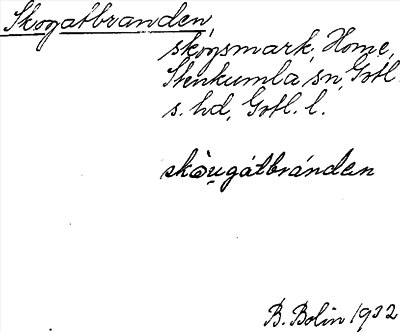 Skogatbranden
skogsmark, Home,
Stenkumla sn, Gotl.
s. hd, Gotl. l.
skòugátbránden
B. Bolin 1932